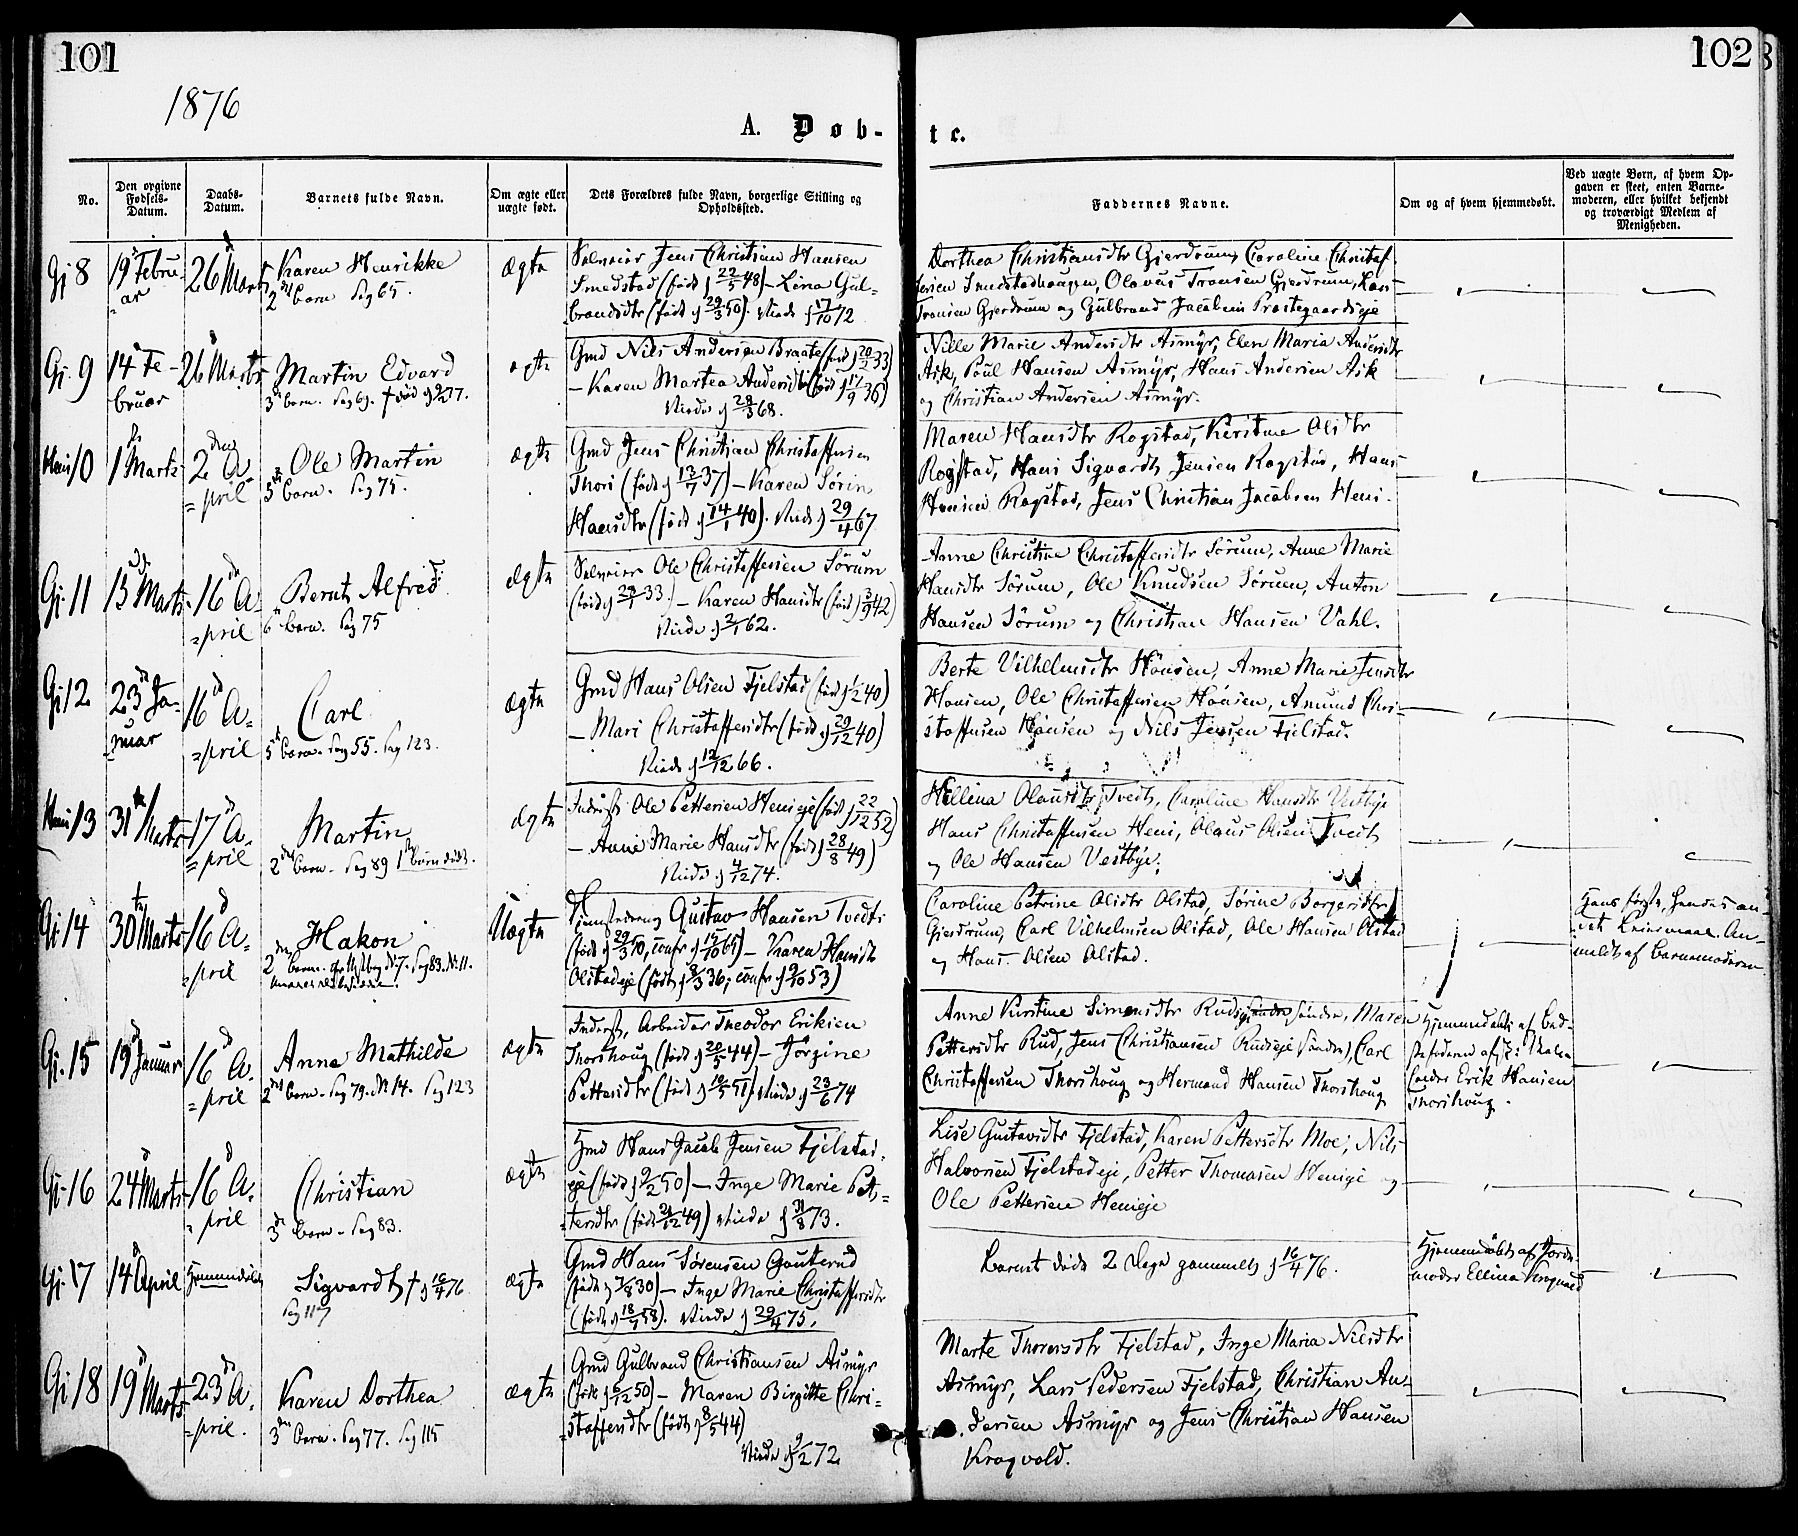 101
102
1876
A. Døb-
te.
No.
Den opgivne Fødsels-Datum.
Daabs-Datum.
Barnets fulde Navn.
Om ægte eller uægte født.
Dets Forældres fulde Navn, borgerlige Stilling og Opholdssted.
Faddernes Navne.
Om og af hvem hjemmedøbt.
Ved uægte Børn, af hvem Op-
gaven er skeet, enten Barne-
moderen, eller hvilket bekjendt
og troværdigt Medlem af
Menigheden.
Gj 8
19 Febru-
ar
26 Marts
Karen Henrikke
2det barn Pag 65.
Ægte
Selveier Jens Christian Hansen
Smedstad (født d 22/5 48) – Lina Gul-
brandsdtr (født d 29/3 50). Viede d 17/10 72
Dorthea Christiansdtr Gjerdrum, Caroline Christof-
fersen Smedstadhaugen, Olavus Tronsen Gjerdrum, Lars
Tronsen Gjerdrum og Gulbrand Jacobsen Præstegaardseje
Gj. 9
14 Fe-
bruar
26 Marts
Martin Edvard
3die barn. Pag 69.
ægte
Gmd Nils Andersen Braate (født d 20/2 33)
– Karen Martea Andersdtr (født d 17/9 36)
Viede d 28/3 68.
Nille Marie Andersdtr Asmyr, Elen Maria Andersdtr
Ask, Poul Hansen Asmyr, Hans Andersen Ask
og Christian Andersen Asmyr.
Heni 10
1 Marts
2den A-
pril
Ole Martin
5te barn. Pag 75.
Ægte
Gmd Jens Christian Christoffersen
Thori (født d 13/7 37) – Karen Sørine
Hansdtr (født d 14/1 40). Viede d 29/4 67
Maren Hansdtr Rogstad, Kirstine Olsdtr
Rogstad, Hans Sigvardt Jensen Rogstad, Hans
Hansen Rogstad, Jens Christian Jacobsen Heni.
Gj. 11
13 Marts
16 A-
pril
Bernt Alfred
6te barn. Pag 75
Ægte
Selveier Ole Christoffersen Sørum
(født d 29/1 33.) – Karen Hansdtr (født d 3/9 42)
Viede d 2/1 62.
Anne Christine Christoffersdtr Sørum, Anne Marie
Hansdtr Sørum, Ole Knudsen Sørum, Anton
Hansen Sørum og Christian Hansen Vahl.
Gj 12
23 Ja-
nuar
16 A-
pril
Carl
5te barn. Pag 55. Pag 123.
Ægte
Gmd Hans Olsen Fjelstad (født d 1/2 40)
– Mari Christoffersdtr (født d 29/12 40)
Viede d 12/12 66.
Berte Vilhelmsdtr Hønsen, Anne Marie Jensdtr
Hønsen, Ole Christoffersen Hønsen, Amund Chri-
stoffersen Hønsen og Nils Jensen Fjelstad.
Heni 13
31te Marts
17 A-
pril
Martin
2det barn. Pag 89 1ste barn dødt.
ægte
Inderst, Ole Pettersen Henieje (født d 22/12 52)
– Anne Marie Hansdtr (født d 28/8 49)
Viede d 4/12 74.
Hellina Olausdtr Tvedt, Caroline Hansdtr Vestbye
Hans Christoffersen Heni, Olaus Olsen Tvedt
og Ole Hansen Vestbye.
Gj 14
30te Marts
16 A-
pril
Hakon
2det barn. Pag 83. No 11.
Uægte
Gustav Hansen Tvedt
(født d 29/3 50, confr d 15/10 65) – Karen Hansdtr
Olstadeje (født d 8/3 36; confr d 9/10 53)
Caroline Petrine Olsdtr Olstad, Sørine Borgersdtr
Gjerdrum, Carl Vilhelmsen Olstad, Ole Hansen Olstad
og Hans Olsen Olstad.
Hans første, hendes an-
det Leiermaal. An-
meldt af barnemoderen
Gj. 15
19 Januar
16 A-
pril
Anne Mathilde
2det barn. Pag 79. No 14. Pag 123
Ægte
Inderst, Arbeider Theodor Eriksen
Thorshoug (født d 20/5 44) – Jørgine
Pettersdtr (født d 19/5 51) Viede d 23/6 74
Anne Kirstine Simensdtr Rudseje søndre, Maren
Pettersdtr Rud, Jens Christiansen Rudseje (søndre), Carl
Christoffersen Thorshoug og Hermand Hansen Thorshoug
Hjemmedøbt af Bed-
stefaderen afsk: Skole-
lærer Erik Hansen
Thorshoug.
Gj. 16
24 Marts
16 A-
pril
Christian
3die barn – Pag 83.
ægte
Gmd Hans Jacob Jensen Fjelstad-
eje (født d 9/2 50) – Inge Marie Pet-
tersdtr (født 21/12 49) Viede d 31/8 73.
Lise Gustavsdtr Fjelstad, Karen Pettersdtr Moe, Nils
Halvorsen Fjelstadeje, Petter Thomasen Henieje og
Ole Pettersen Henieje
Gj. 17
14 April
Hjemmedøbt
Sigvardt † d 16/4 76
Pag 117
Ægte
Gmd Hans Sørensen Gauterud
(født d 7/8 30) – Inge Marie Christoffersdtr
(født d 18/7 58). Viede d 29/4 75.
Barnet døde 2 Dage gammelt d 16/4 76.
Hjemmedøbt af Jorde-
moder Ellina Kragvold
Gj 18
19 Marts
23 A-
pril.
Karen Dorthea
3die Barn. Pag 77. Pag 115
ægte
Gmd Gulbrand Christiansen Asmyr
(født d 6/12 50) – Maren Birgitte Chri-
stoffersdtr (født d 8/5 44)
Viede d 9/2 72
Marte Thorersdtr Fjelstad, Inge Maria Nilsdtr
Asmyr, Lars Pedersen Fjelstad, Christian An-
dersen Asmyr og Jens Christian Hansen
Kragvold.